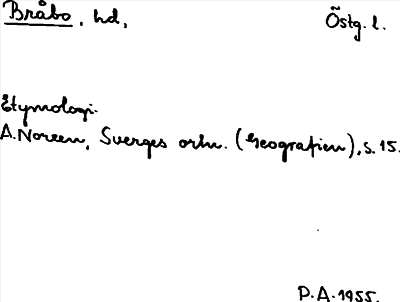 Bråbo, hd, Östg. l.
Etymologi.
A. Noreen, Sverges ortn. (Geografien), s. 15.
P.A. 1955.